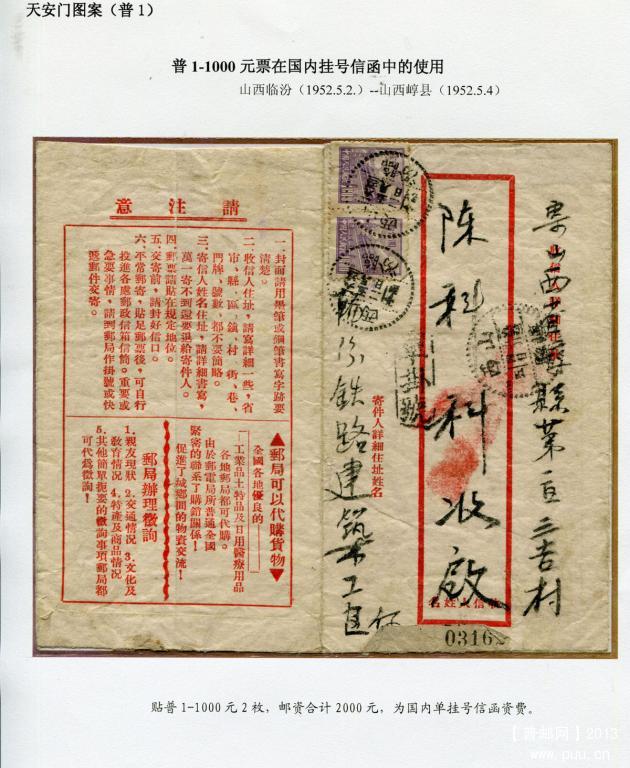 天安门图案（普1）
普1-1000元票在国内挂号信函中的使用
山西临汾（1952.5.2.）--山西崞县（1952.5.4）
請注意
一．封面請用墨筆或鋼筆書寫字跡要
清楚。
二．收信人住址，請寫詳細一些，省
市、縣、區、鎮、村、街、巷、
門牌、號數，都不要簡略。
三．寄信人姓名住址，請詳細書寫，
萬一寄不到還要退給寄件人。
四．郵票請貼在規定地位。
五．交寄前，請封好信口。
六．不常郵寄，貼足郵票後，可自行
投進各處郵政信箱信筒。重要或
急要事情，請到郵局作掛號或快
遞郵件交寄。
▲郵局可以代購貨物▼
全國各地優良的
工業品土特品及日用醫療用品
各地郵局都可代購。
由於郵電局所普遍全國
緊密的聯系了購銷關係！
促進了城鄉間的物資交流！
郵局辦理徵詢
1.親友現狀 2.交通情況 3.文化及
教育情況 4.特產及商品情況
5.其他簡單扼要的徵詢事項郵局都
可代爲徵詢！
山西省
縣第二吉村
陈科科收啟
收信人姓名
寄件人詳細住址姓名
汾鉄路建築工
0316
贴普1-1000元2枚，邮资合计2000元，为国内单挂号信函资费。
【普邮网】2013
www.puu.cn